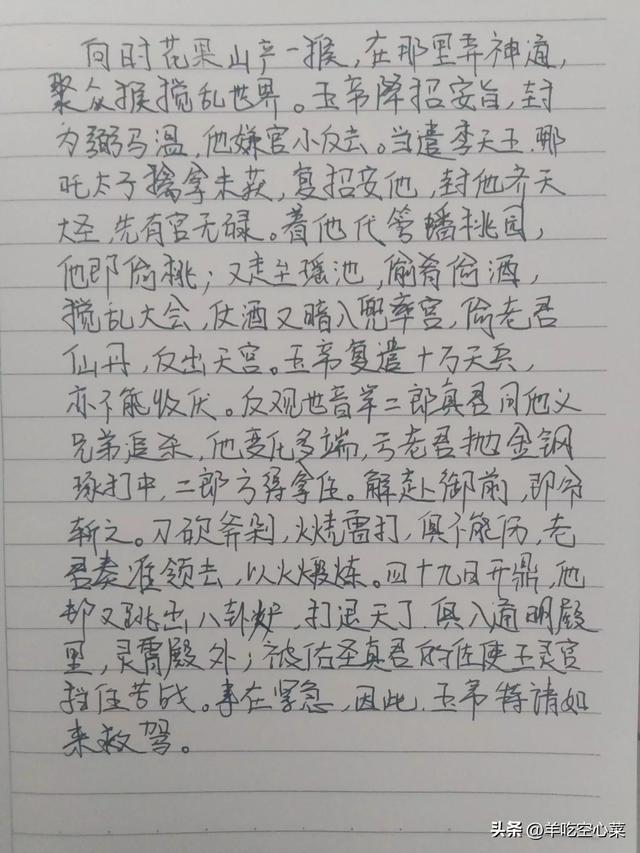 向时花果山产一猴，在那里弄神通，
聚众猴搅乱世界。玉帝降招安旨，封
为弼马温，他嫌官小反去。当遣李天王、哪
吒太子擒拿未获，复招安他，封他齐天
大圣，先有官无禄。着他代管蟠桃园，
他即偷桃；又走至瑶池，偷肴偷酒，
搅乱大会，仗酒又暗入兜率宫，偷老君
仙丹，反出天宫。玉帝复遣十万天兵，
亦不能收伏。后观世音举二郎真君同他义
兄弟追杀，他变化多端，亏老君抛金钢
琢打中，二郎方得拿住。解赴御前，即命
斩之。刀砍斧剁，火烧雷打，俱不能伤，老
君奏准领去，以火煅炼。四十九日开鼎，他
却又跳出八卦炉，打退天丁，俱入通明殿
里，灵霄殿外；被佑圣真君的佐使王灵官
挡住苦战。事在紧急，因此，玉帝特请如
来救驾。
头条@羊吃空心菜